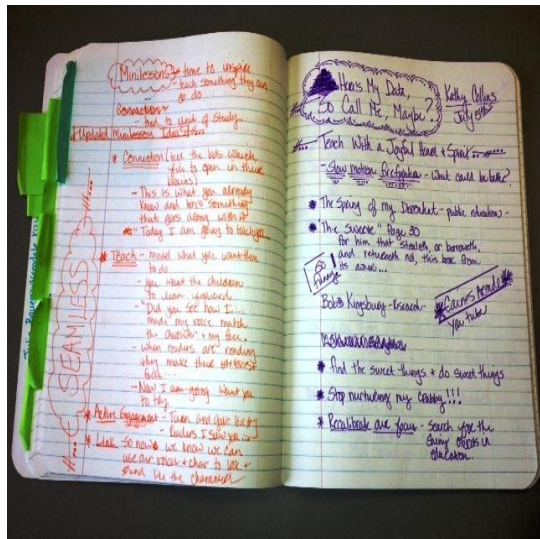 Minilessons → time to inspire
- teach something they can
go do
Connections
- tied to unit of study
* Updated Minilesson Ideas
* Connection (tell the kids which
file to open in their
brains)
- This is what you already
know and here's something
that goes along with it
* "Today I am going to teach you
* Teach - model what you want them
to do
- you want the children
to lean
- "Did you see how I...
made my voice match
the character + my face.
- when readers are reading
they make their voices
- Now I am going want you
to try.
* Active Engagement - Turn and
- Readers I saw you...
* Link so now we know we can
use our voices + to +
sound like the character
SEAMLESS
Here's My Data,
So Call Me, Maybe?
Kathy Collins
July 5th
Teach With a Joyful Heart + Spirit
- Slow motion - What could be better?
* The Spring of my - public education -
* The Page 30
for him that stealeth, or borroweth,
and returneth not, this book from
its owner...
So
Funny!
Bob Kingsbury - research -
* Cain's Arcade *
You tube
* find the sweet things + do sweet things
* Stop nurturing my crabby!!!
* Recalibrate our focus - search for the
in
education.